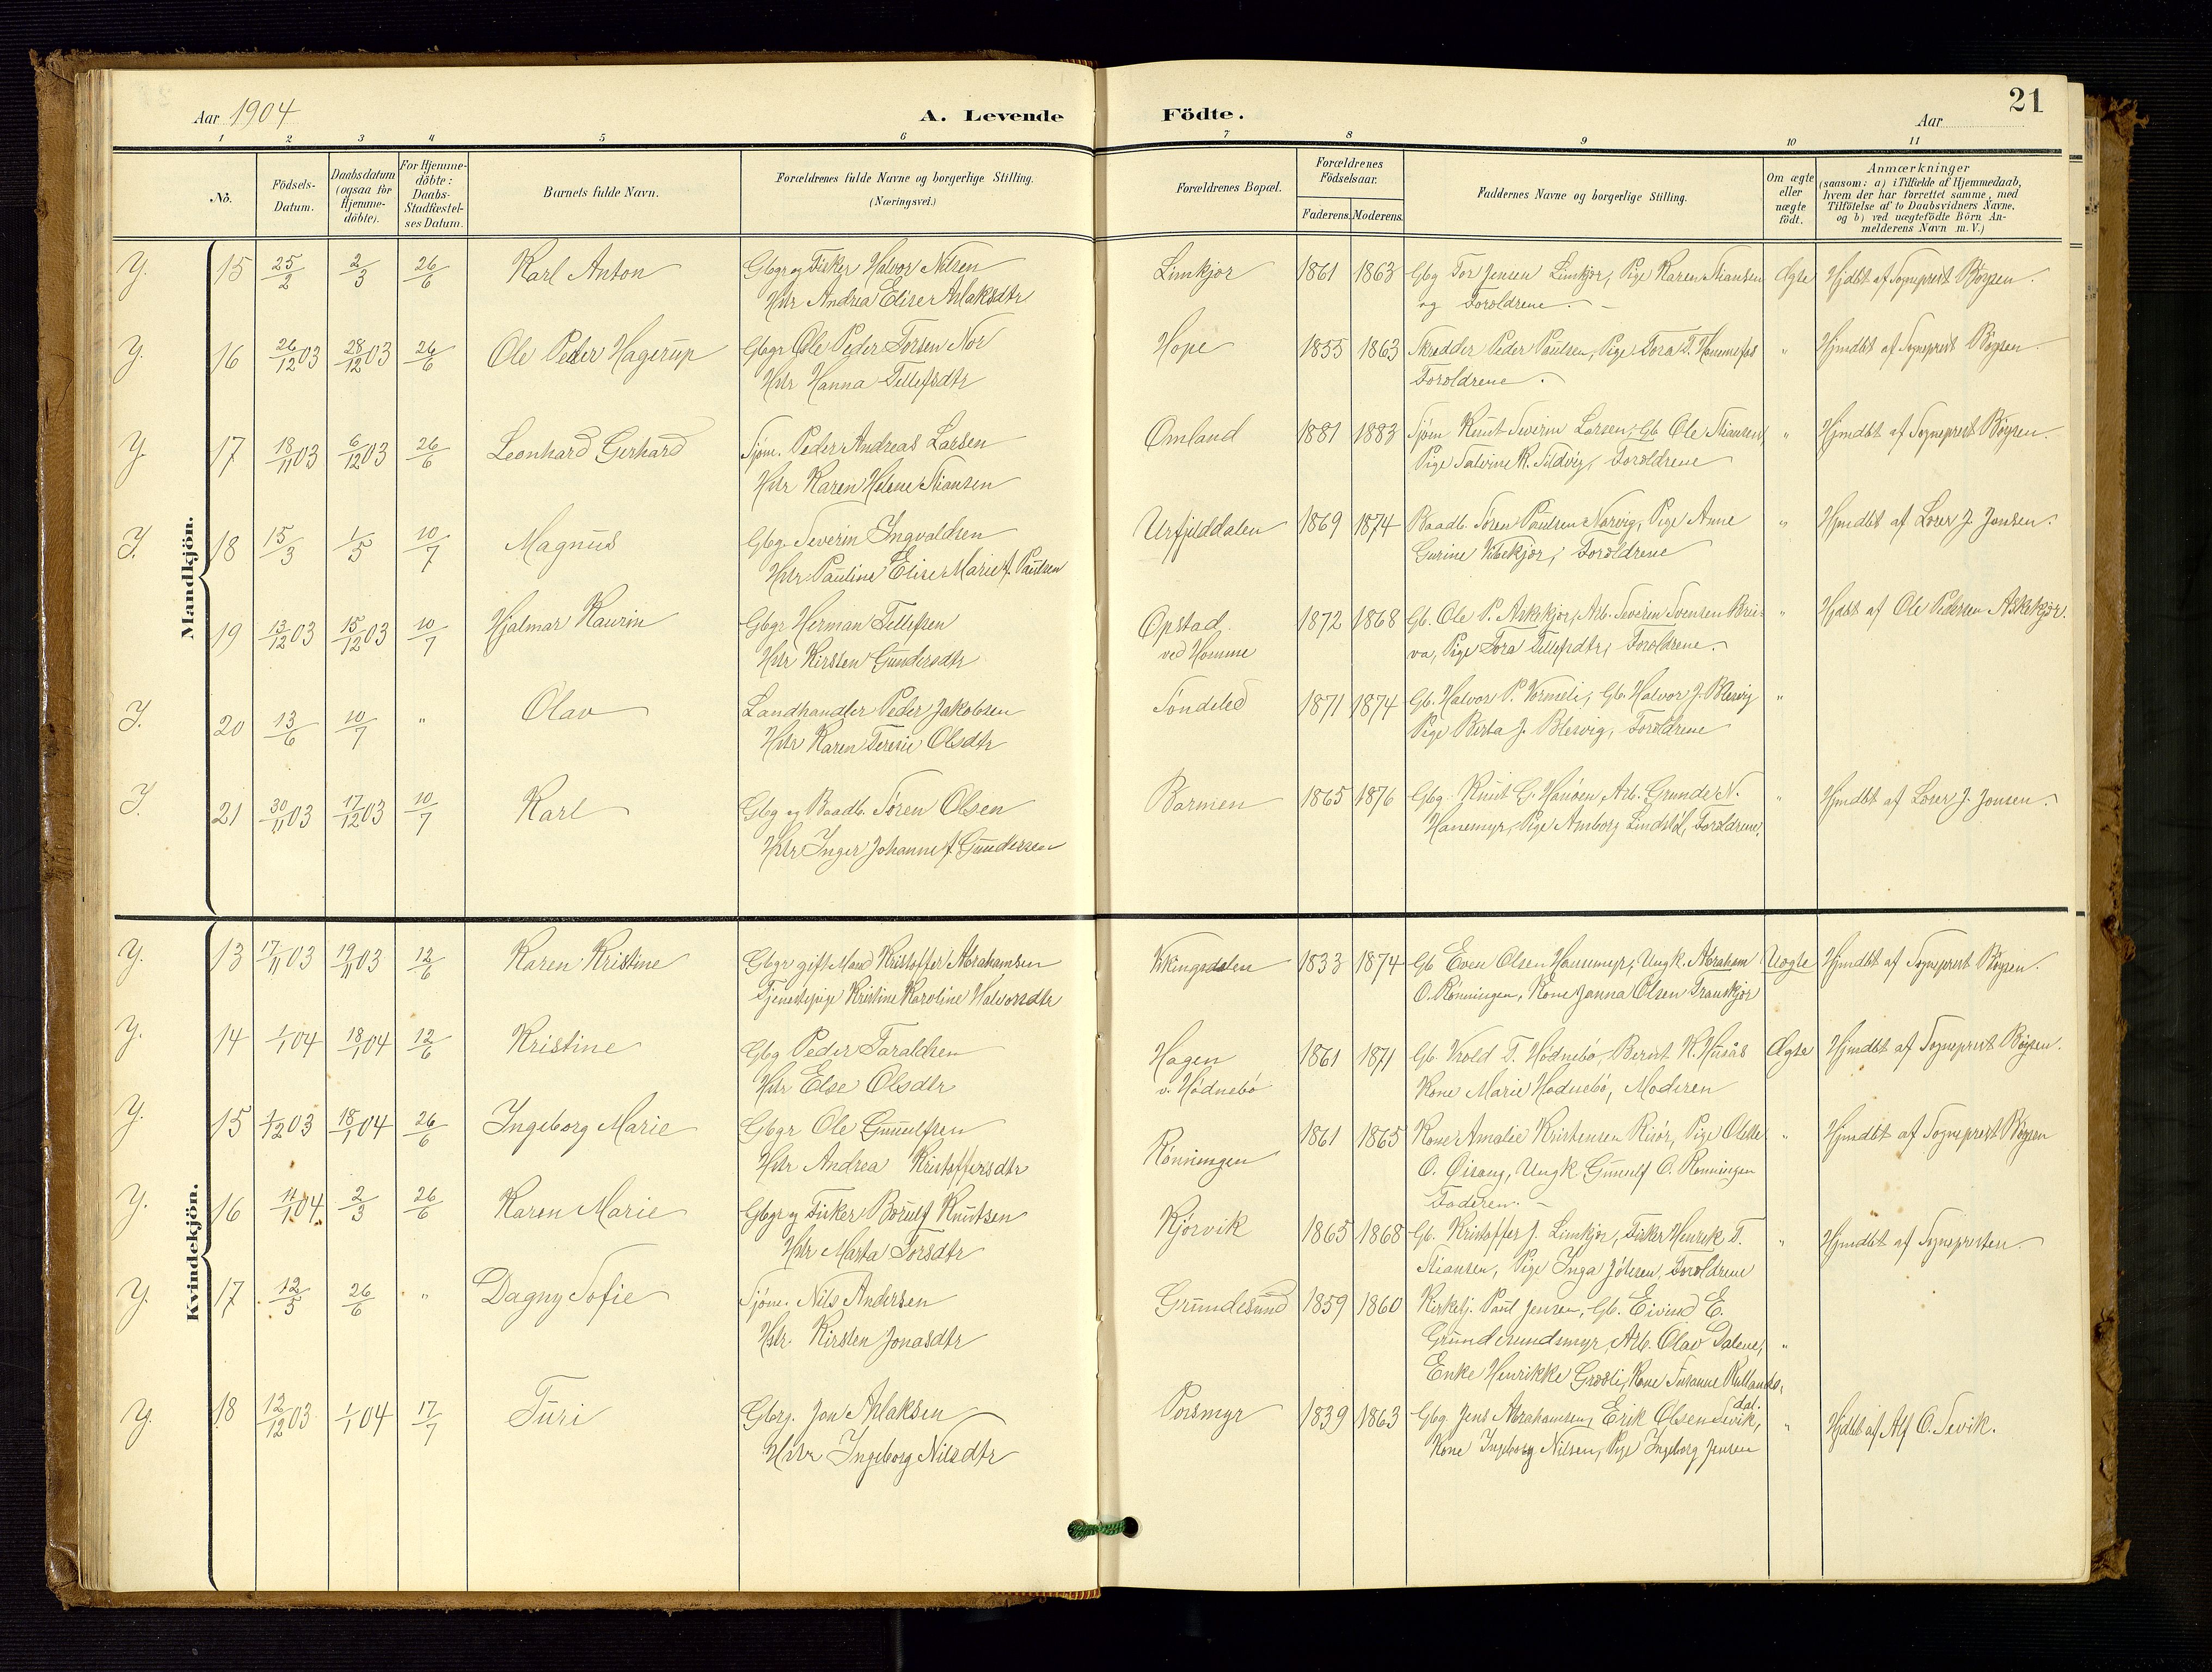 Aar 1904
A. Levende Födte.
Aar
21
1 2 3 4 5 6 7 8 9 10 11
No.
Födsels-Datum.
Daabsdatum (ogsaa for Hjemme-döbte).
For Hjemme-döbte: Daabs-Stadfæstel-ses Datum.
Barnets fulde Navn.
Forældrenes fulde Navne og borgerlige Stilling.
(Næringsvei.)
Forældrenes Bopæl.
Forældrenes Födselsaar.
Faderens. Moderens.
Faddernes Navne og borgerlige Stilling.
Om ægte eller uægte födt.
Anmærkninger
(saasom: a) i Tilfælde af Hjemmedaab,
hvem der har forrettet samme, med
Tilföielse af to Daabsvidners Navne,
og b) ved uægtefödte Börn An-
melderens Navn m. V.)
Mandkjön.
Y. 15 25/2 2/3 26/6 Karl Anton Gbgr og Fisker Halvor Nilsen Limkjær 1861 1863 Gbg Tor Jensen Limkjær, Pige Karen Stiansen Ægte Hjdbt af Sogneprest Böysen.
Hstr Andrea Elise Aslaksdtr og Foreldrene.
Y. 16 26/12 03 28/12 03 26/6 Ole Peder Hagerup Gbgr Ole Peder Torsen Nor Hope 1855 1863 Skredder Peder Paulsen, Pige Tora T. " Hjmdbt af Sogneprest Böysen
Hstr Hanna Tellefsdtr Foreldrene.
Y. 17 18/11 03 6/12 03 26/6 Leonhard Gerhard Sjöm. Peder Andreas Larsen Omland 1881 1883 Sjöm Knut Severin Larsen, Gb. Ole Stiansen " Hjmdbt af Sogneprest Böysen.
Hstr Karen Helene Stiansen Pige K. Sildvig, Foreldrene
Y. 18 15/3 1/5 10/7 Magnus Gbg. Severin Ingvaldsen Urfjelddalen 1869 1874 Baadb. Sören Paulsen Narvig, Pige Anne " Hjmdbt af Lærer J. Jonsen.
Hstr Pauline Elise Marie f. Paulsen Gurine, Foreldrene
19 13/12 03 15/12 03 10/7 Hjalmar Kaurin Gbgr Herman Tellefsen Opstad 1872 1868 Gb. Ole P. Askekjær, Arb. Severin Svensen " Hjdbt af Ole Pedersen Askekjær.
Hstr Kirsten Gundersdtr ved Homme Pige Tora Tellefsdtr, Foreldrene.
Y. 20 13/6 10/7 " Olav Landhandler Peder Jakobsen Söndeled 1871 1874 Gb. Halvor P. Vormeli, Gb. Halvor J. Blesvig "
Hstr Karen Teresie Olsdtr Pige Berta J. Blesvig, Foreldrene
Y. 21 30/11 03 17/12 03 10/7 Karl Gbg og Baadb. Sören Olsen Barmen 1865 1876 Gbg. Knut G. Arb. Grunde N. " Hjmdbt af Lærer J. Jonsen.
Hstr Inger Johanne f. Gundersen Hanemyr, Pige Amborg Lindstöl, Foreldrene.
Kvindekjön.
Y. 13 17/11 03 19/11 03 12/6 Karen Kristine Gbgr gift Mand Kristoffer Abrahamsen Vikingsdalen 1833 1874 Gb Even Olsen, Ungk. Abraham Uægte Hjmdbt af Sogneprest Böysen.
Tjenestepige Kristine Karoline Halvorsdtr O. Rönningen, Kone Janna Olsen
Y. 14 1/1 04 18/1 04 12/6 Kristine Gbg Peder Taraldsen Hagen 1861 1871 Gb. T. Hödnebö, Bernt K. Husås Ægte Hjmdbt af Sogneprest Böysen.
Hstr Else Olsdtr v. Hödnebö Kone Marie Hödnebö, Moderen
Y. 15 1/12 03 18/1 04 26/6 Ingeborg Marie Gbgr Ole Gunulfsen Rönningen 1861 1865 Kone Amalie Kristensen Risör, Pige " Hjmdbt af Sogneprest Böysen
Hstr Andrea Kristoffersdtr O., Ungk. Gunulf O. Rönningen
Faderen.
Y. 16 11/1 04 2/3 26/6 Karen Marie Gbgr og Fisker Borulf Knutsen Kjörvik 1865 1868 Gb. Kristoffer J. Limkjær, Fisker Henrik T. " Hjmdbt af Sognepresten.
Hstr Marta Torsdtr Stiansen, Pige Inga, Foreldrene
Y. 17 12/5 26/6 " Dagny Sofie Sjöm. Nils Andersen Grundesund 1859 1860 Kirketj. Paul Jensen, Gb. Eivind E.
Hstr. Kirsten Jonasdtr Grundesundmyr, Arb. Olav Dalene, "
Enke Henrikke, Kone Susanne Rutlands-
dal.
Y. 18 12/12 03 1/1 04 17/7 Turi Gbrg. Jon Aslaksen Porsmyr 1839 1863 Gbg. Jens Abrahamsen, Erik Olsen Sevik, " Hjdbt af Alf O. Sevik.
Hstr Ingeborg Nilsdtr Kone Ingeborg Nilsen, Pige Ingeborg Jensen